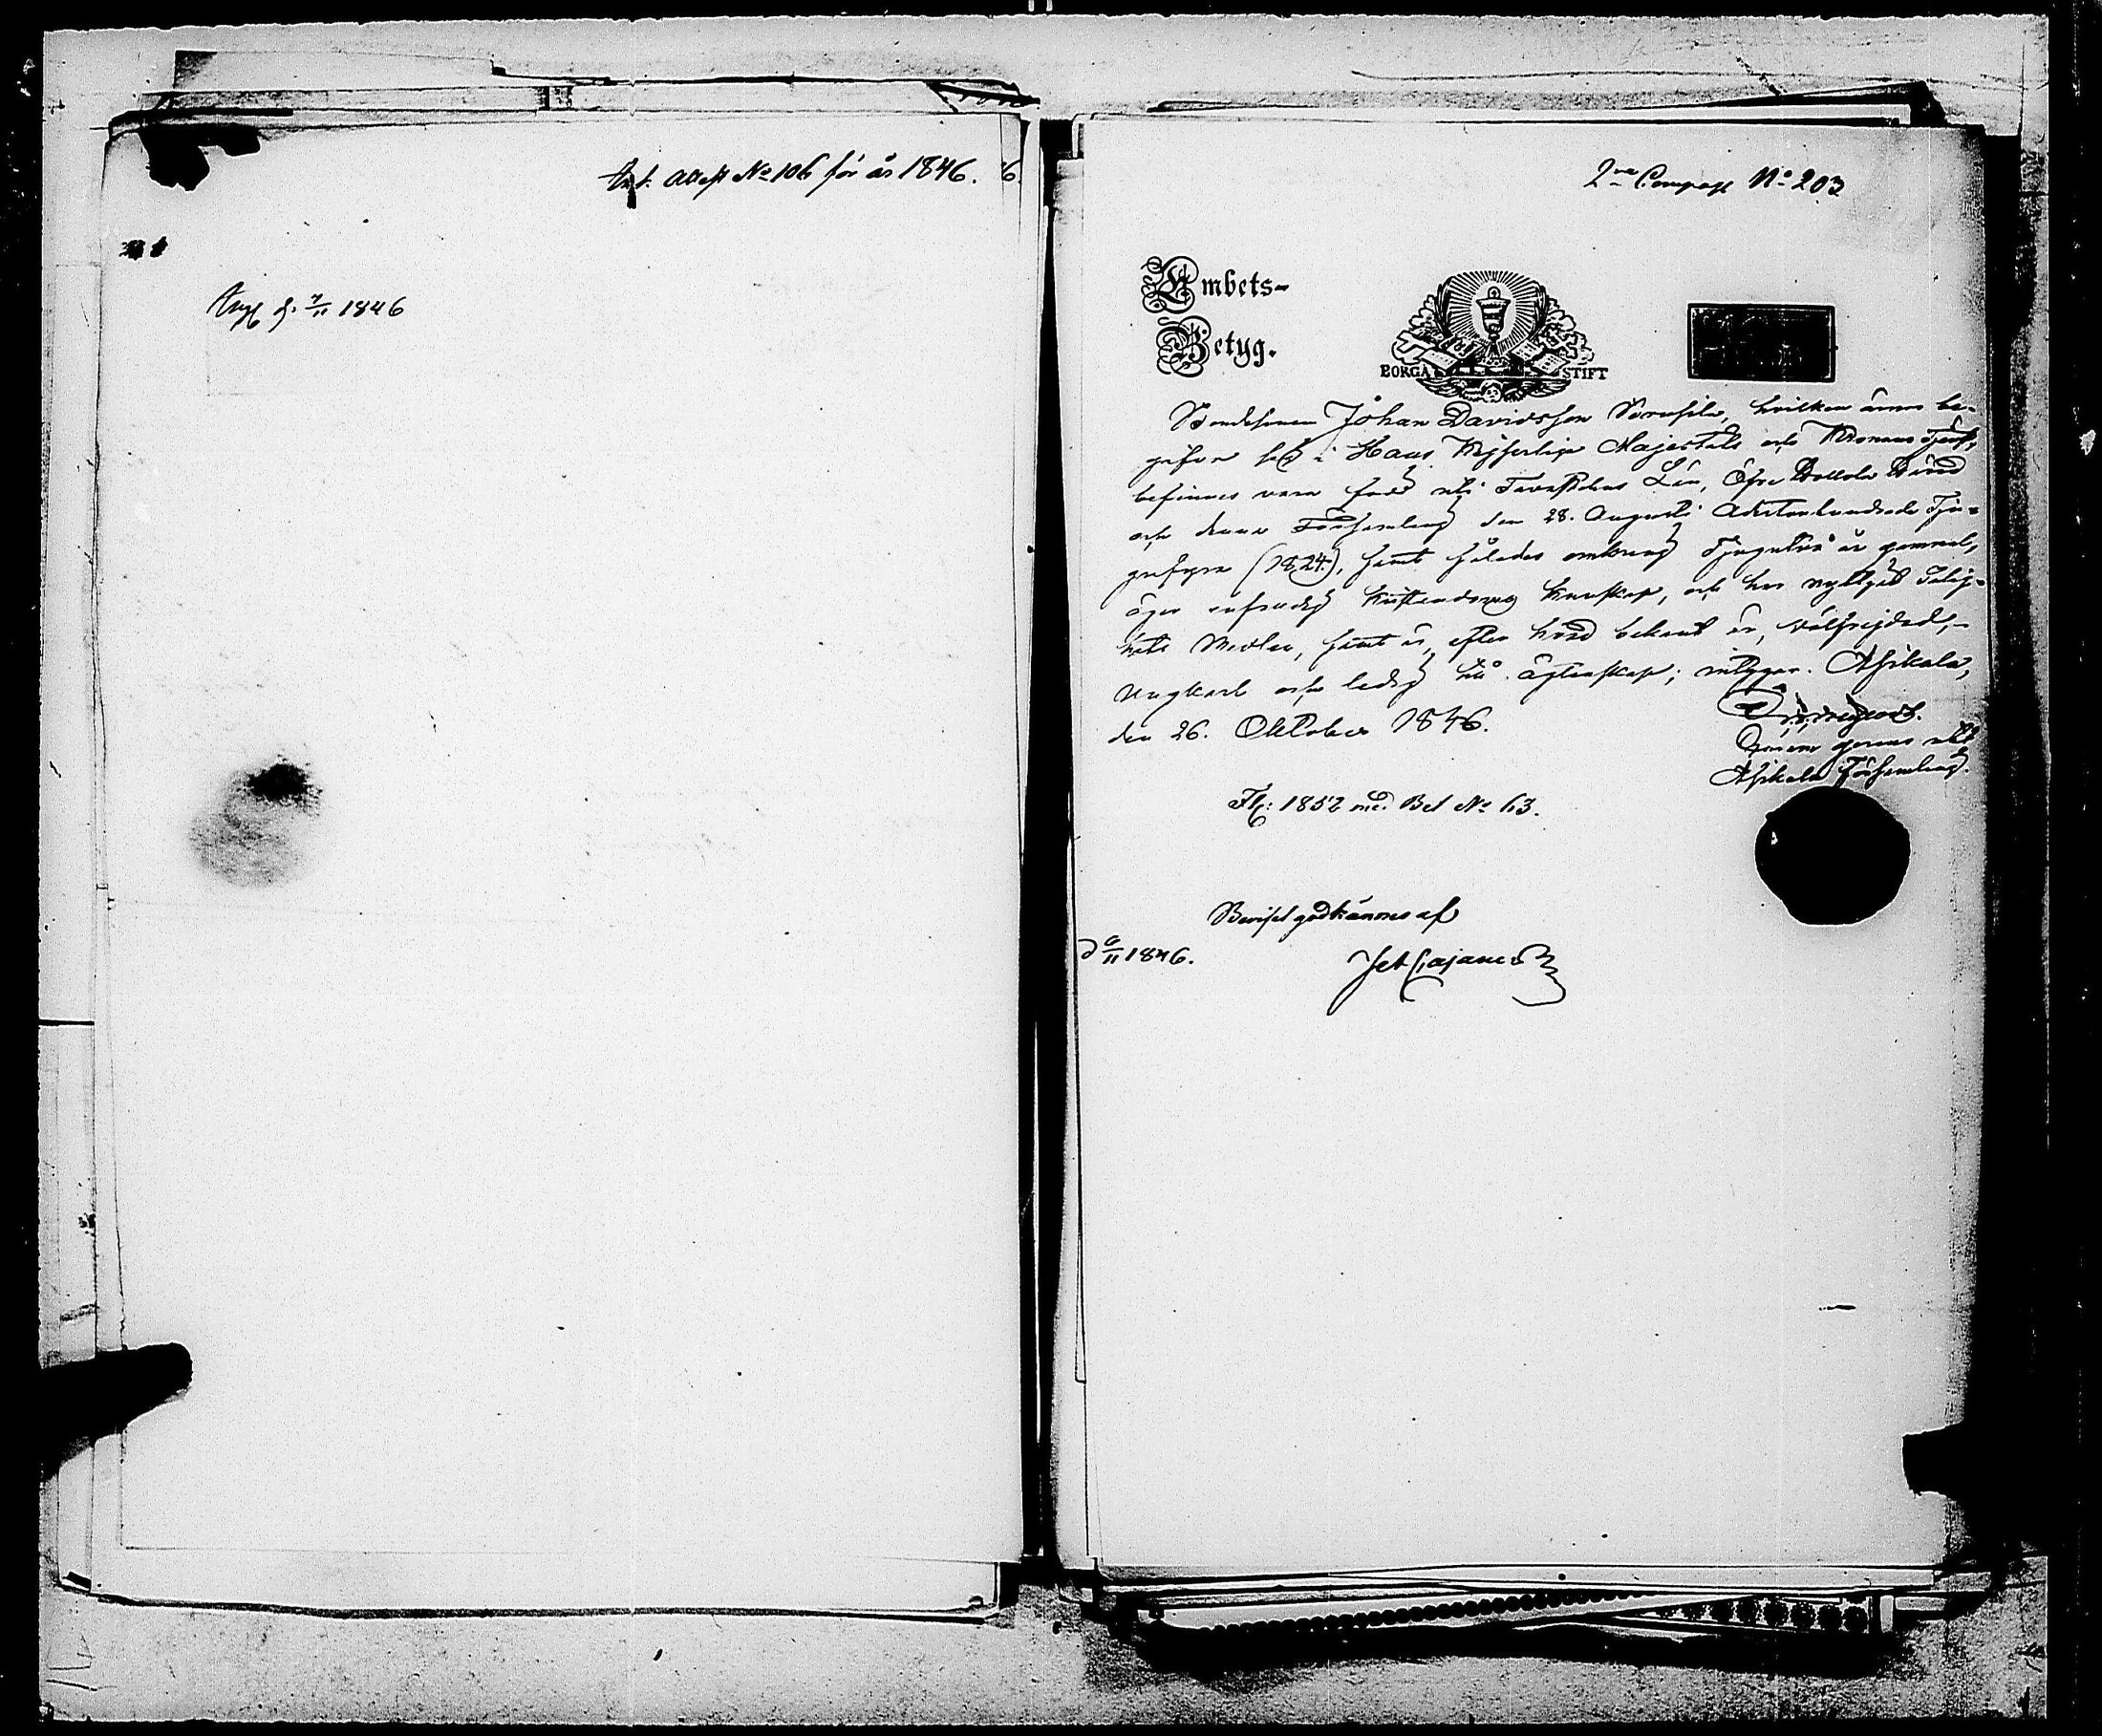 Ank. Attest No 106 för år 1846.
6.
d. 7/11 1846
2ra Compagt No 203
Embets-
Betyg.
BORGÅ STIFT
Bondesonen Johan Davidsson Sorusila, hvilken ämnar be-
gifva sig i Hans Kejserliga Majestäts och Kronans Tjenst,
befinnes vara född uti Tavastehus Län, Öfre Hollola Härad
och denna Församling den 28. Augusti Adertonhundrade Tju-
gufyra (1824), samt således omkring Tjugutvå år gammal,
äger enfaldig Kristendoms kunskap, och har nyttjat Salig-
hets Medlen, samt är, efter hvad bekant är, välfrejdad,
Ungkarl och ledig till ägtenskap; intygar. Asikkala,
den 26. Oktober 1846.
Asikkala Församling.
Flg: 1852 med Bet No 63.
Beviset godkännes af
d 6/11 1846.
Cajanus